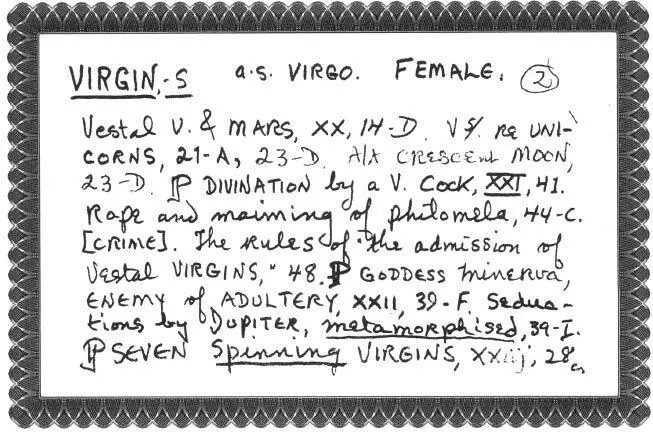 VIRGIN,-S a.s. VIRGO. FEMALE. 2
Vestal V. & MARS, XX, 14-D. V's re UNI-
CORNS, 21-A, 23-D. A/A CRESCENT MOON,
23-D. P DIVINATION by a V. Cock, XXI, 41.
Rape and maiming of Philomela, 44-C.
[CRIME]. The Rules of "the admission of
Vestal VIRGINS," 48. P GODDESS Minerva,
ENEMY of ADULTERY, XXII, 39-F. Seduc-
tions by JUPITER, metamorphised, 39-I.
P SEVEN Spinning VIRGINS, 28